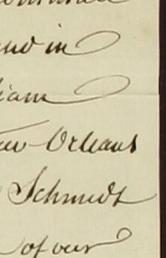 and in
liam
New Orleans
Schmidt
of our